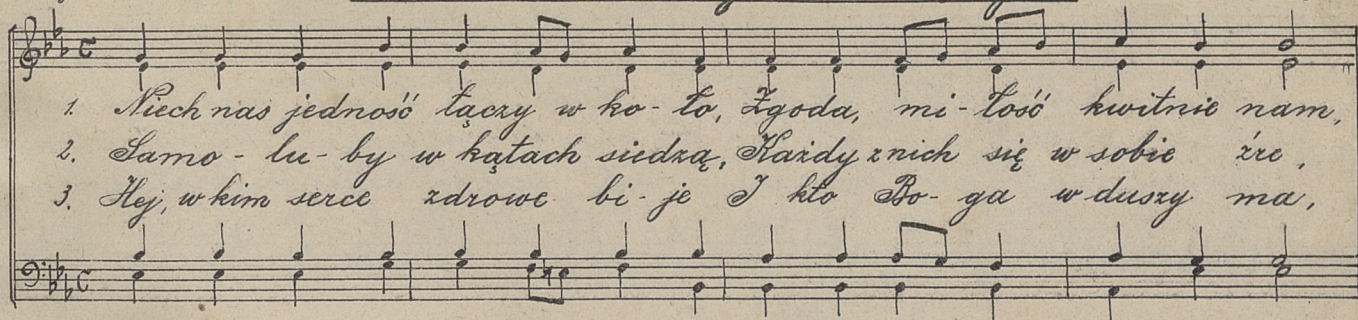 1. Niech nas jedność łączy w ko-ło, Zgoda, mi-łość kwitnie nam,
2. Samo-lu-by w kątach siedzą, Każdy z nich się w sobie żre,
3. Hej, w kim serce zdrowe bi-je I kto Bo-ga w duszy ma,